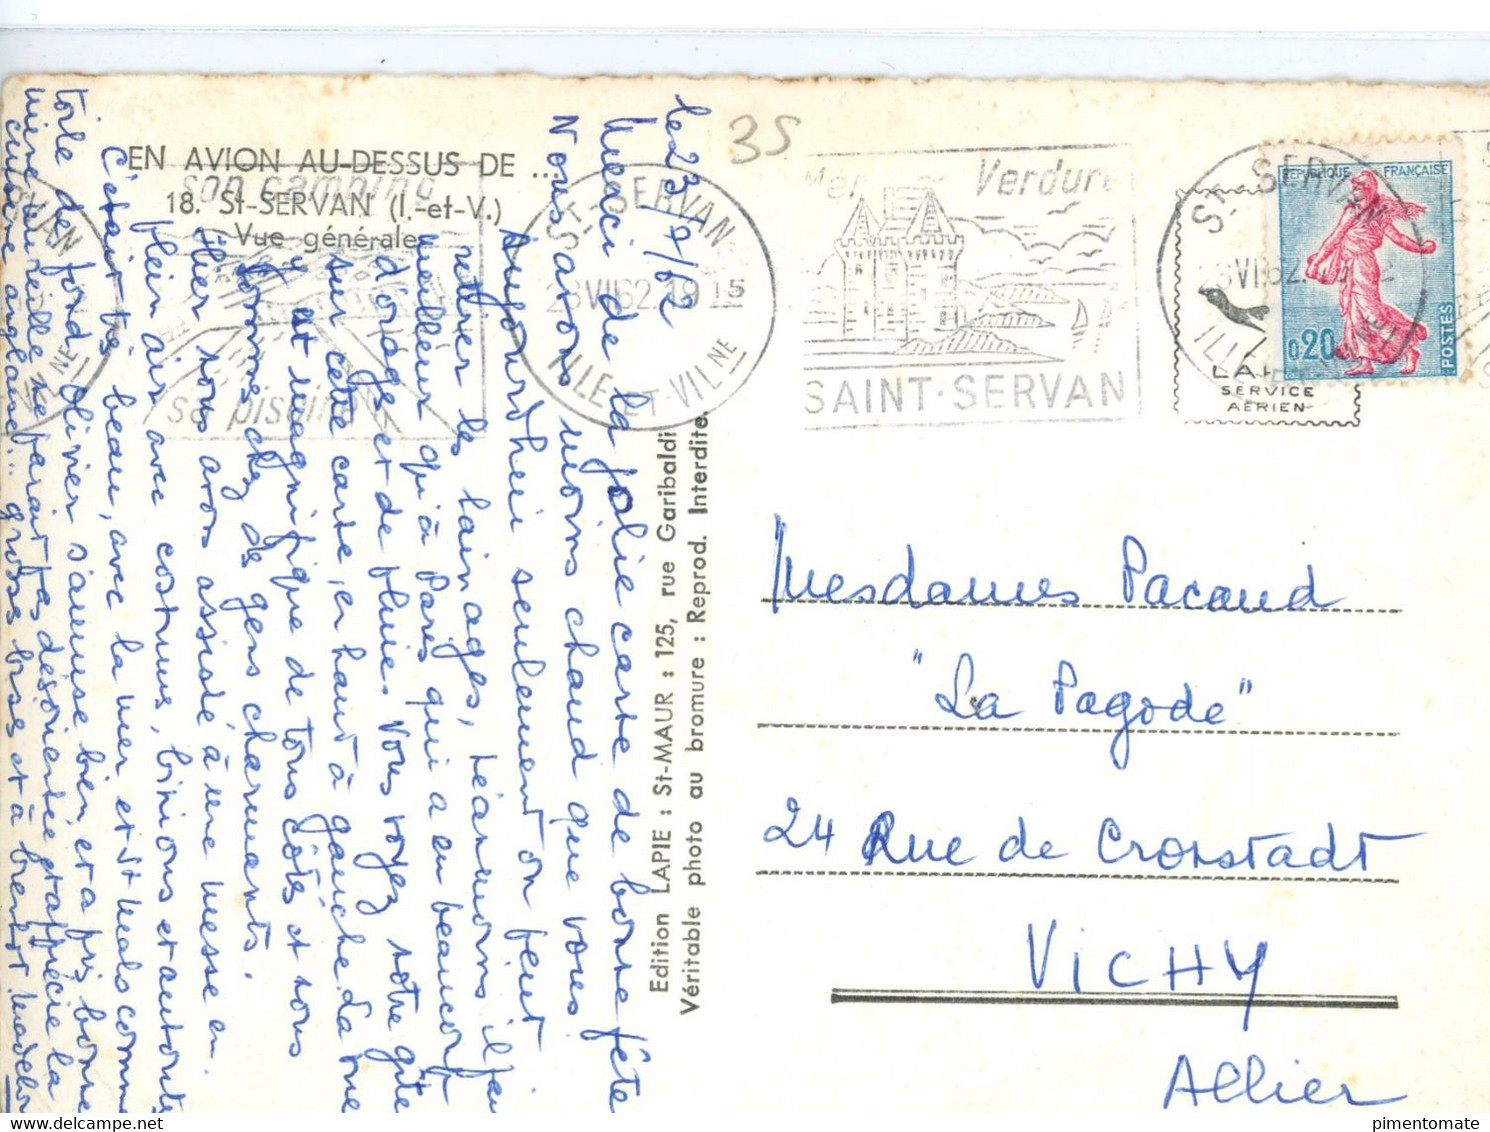 EN AVION AU-DESSUS DE ...
18. St-SERVAN (I.-et-V.)
Vue générale
son camping
sa piscine
ST-SERVAN
19 15
ILLE-ET-VILNE
35
Mer Verdure
SAINT-SERVAN
ST-SERVAN
REPUBLIQUE FRANÇAISE
0,20
POSTES
SERVICE
AÉRIEN
le 23/7/62
Merci de la jolie carte de bonne fête
Nous avons moins chaud que vous.
Aujourd'hui seulement on peut
retirer les lainages, néanmoins il fait
meilleur qu'à Paris qui a eu beaucoup
d'orage et de pluie. Vous voyez notre gîte
sur cette carte, en haut à gauche. La vue
y est magnifique de tous côtés et nous
sommes chez de gens charmants.
Hier nous avons assisté à une messe en
plein air avec costumes, binious et autour
C'était très beau, avec la mer et St Malo comme
toile de fond. Olivier s'amuse bien et a pris bonne
mine. Mireille ne paraît pas désorientée et apprécie la
cuisine anglaise... grosses bises et à bientôt
Edition LAPIE : St-MAUR : 125, rue Garibaldi
Véritable photo au bromure : Reprod. Interdite.
Mesdames Pacaud
"La Pagode"
24 Rue de Cronstadt
VICHY
Allier
pimentomate